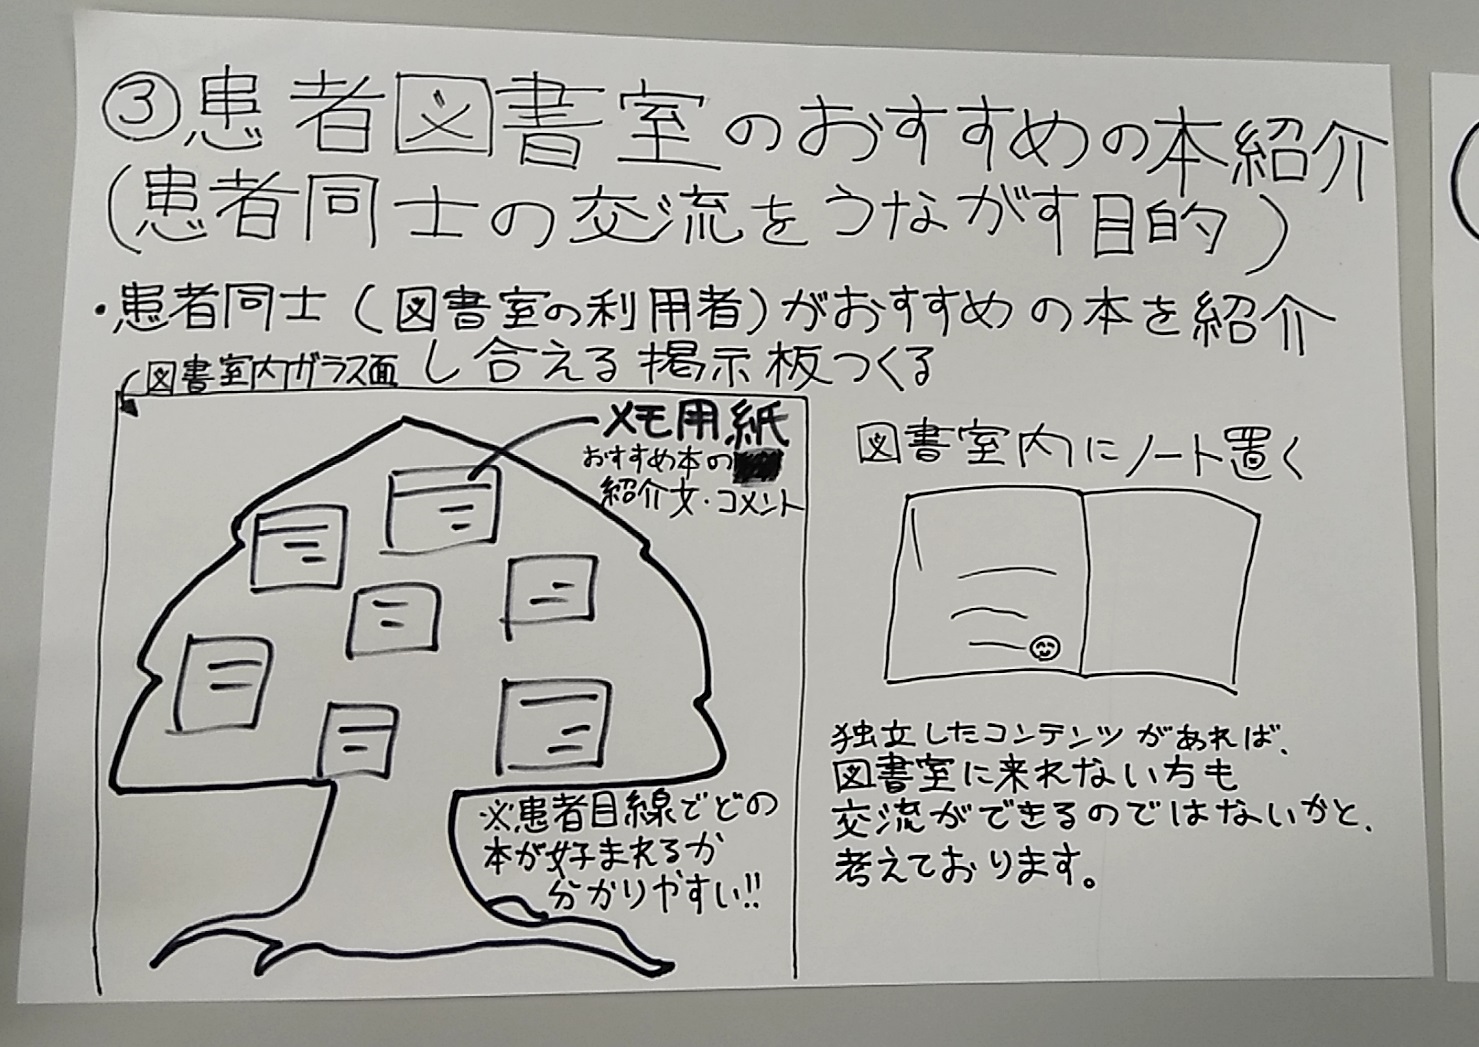 ③患者図書室のおすすめの本紹介
(患者同士の交流をうながす目的)
・患者同士(図書室の利用者)がおすすめの本を紹介
し合える掲示板つくる
図書室内ガラス面
メモ用紙
おすすめ本の
紹介文・コメント
※患者目線でどの
本が好まれるか
分かりやすい!!
図書室内にノート置く
独立したコンテンツがあれば、
図書室に来れない方も
交流ができるのではないかと、
考えております。